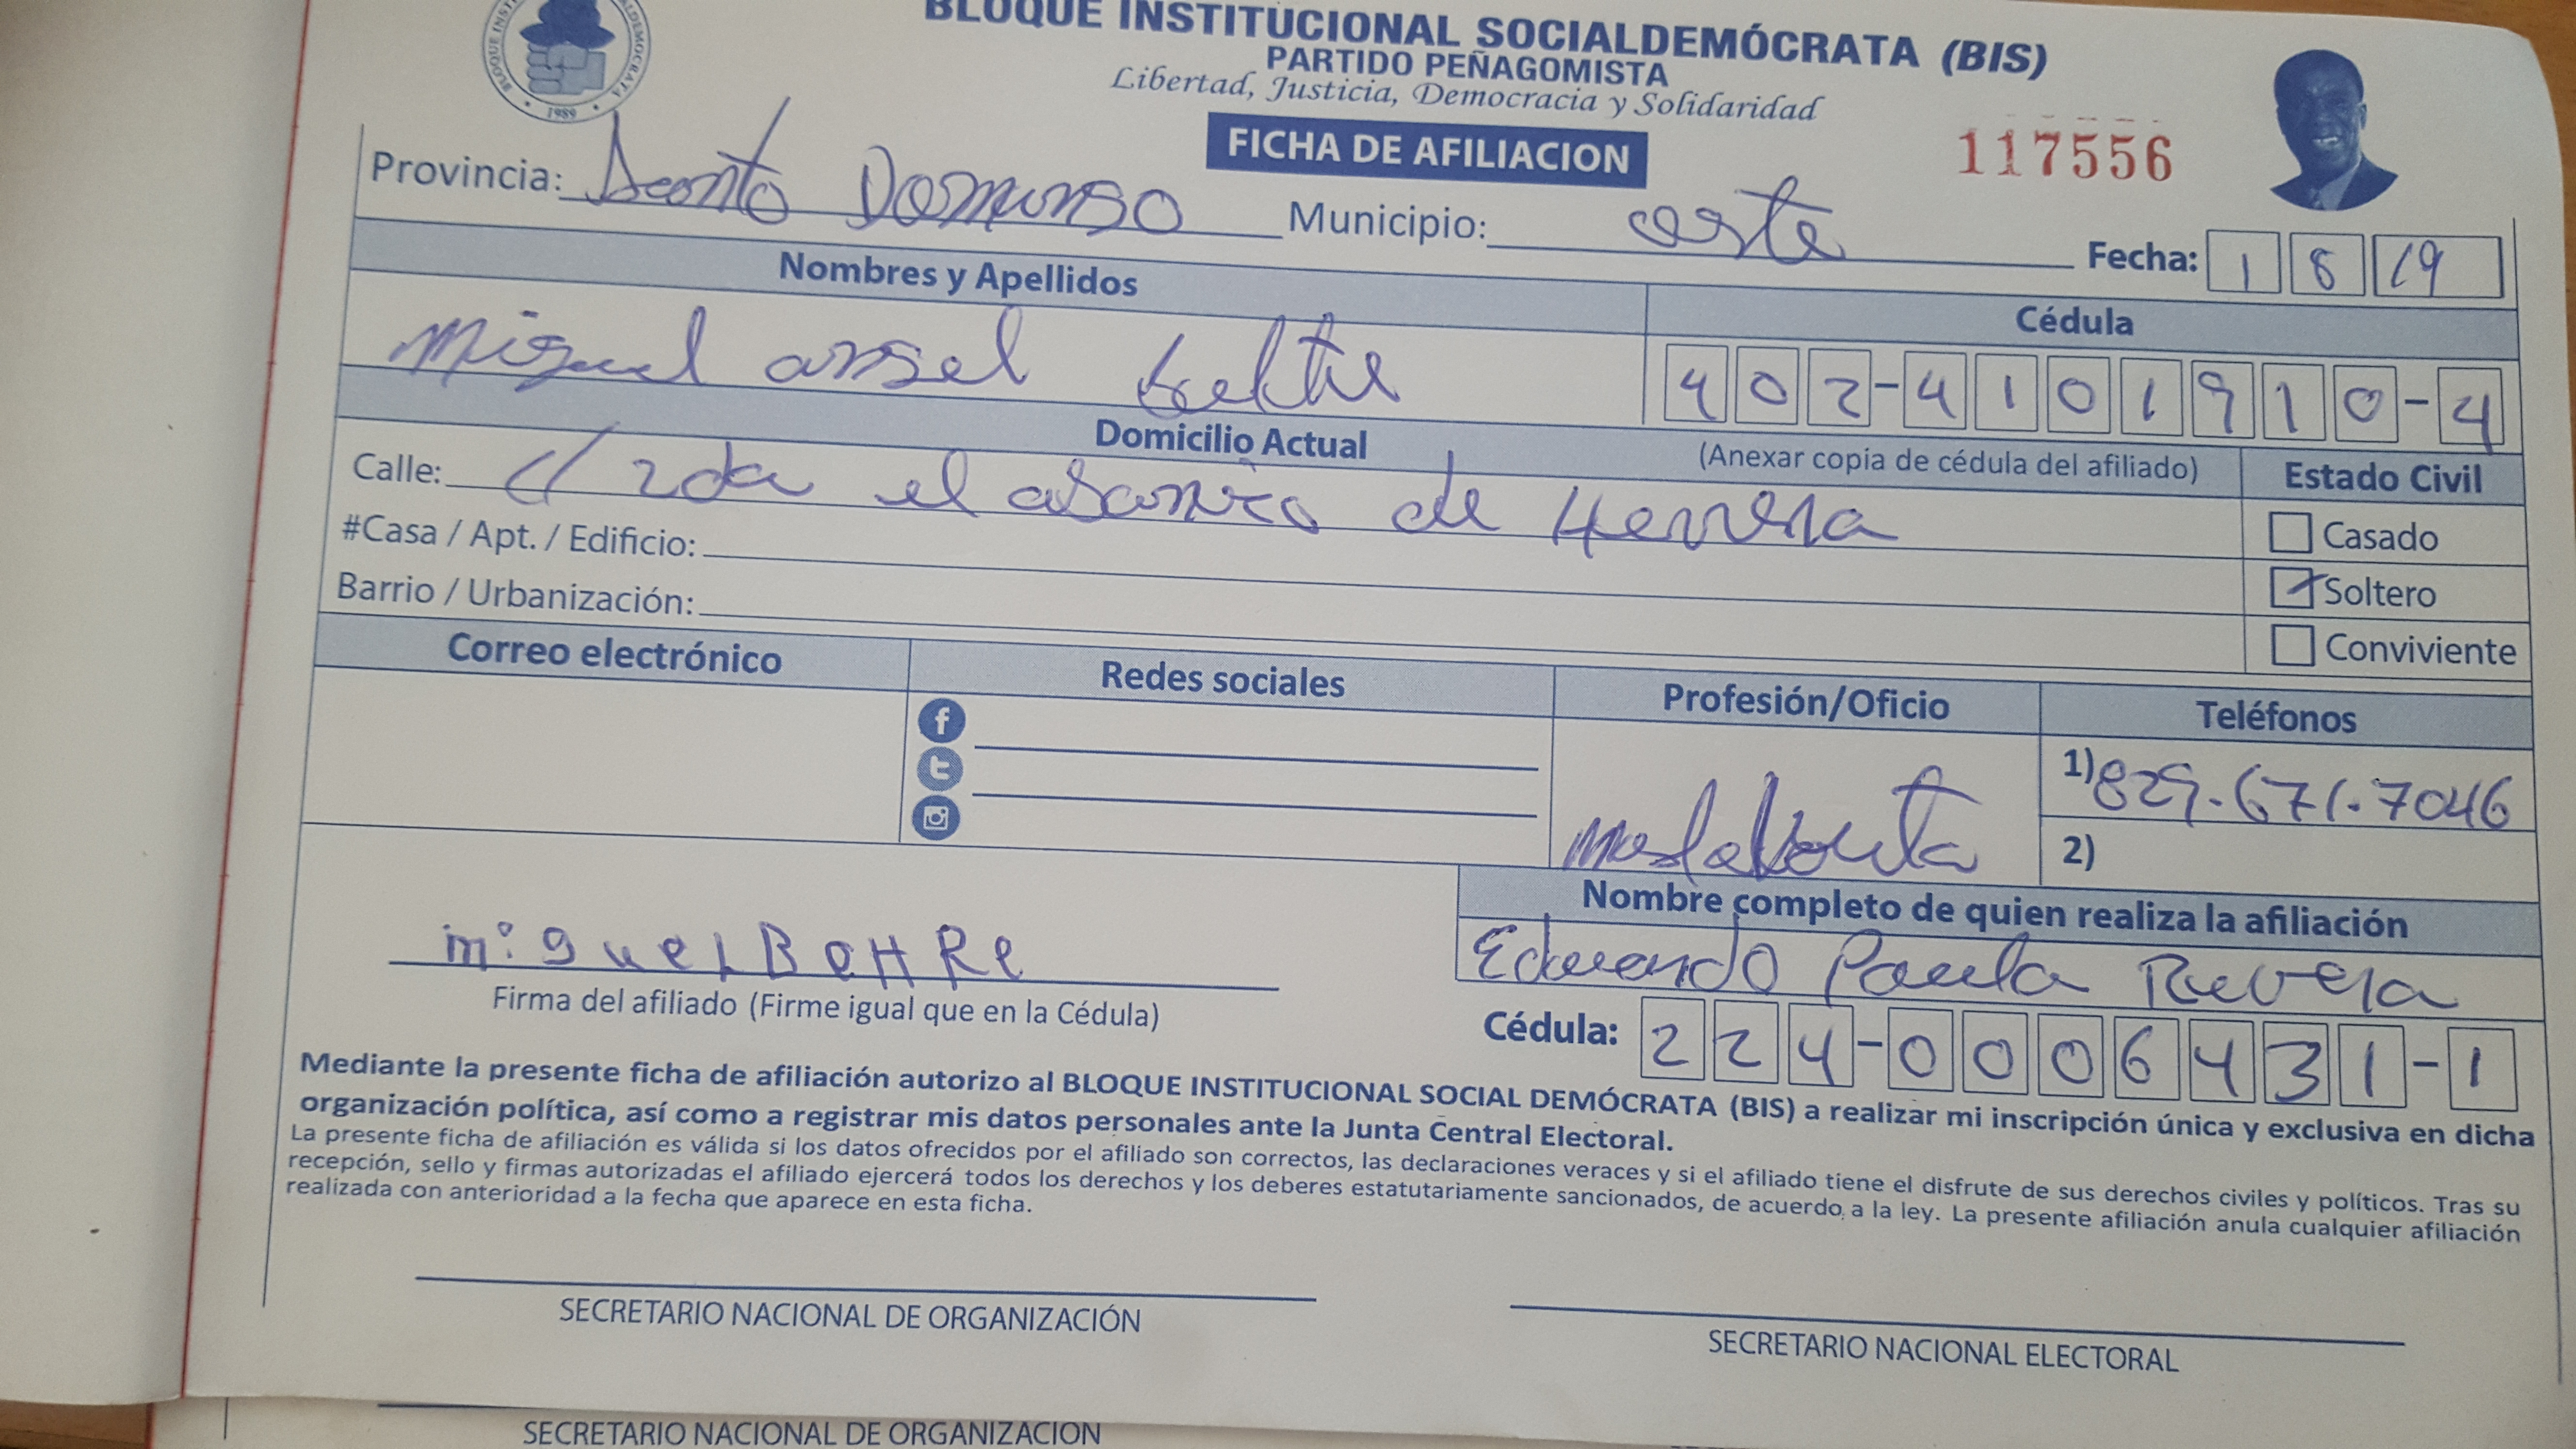 BLOQUE INSTITUCIONAL SOCIALDEMÓCRATA (BIS)
PARTIDO PEÑAGOMISTA
Libertad, Justicia, Democracia y Solidaridad
1989
FICHA DE AFILIACION
117556
Provincia: Santo Domingo Municipio: oeste Fecha: 1 8 19
Nombres y Apellidos
Cédula
Miguel angel beltre
402-4101910-4
Domicilio Actual
(Anexar copia de cédula del afiliado)
Estado Civil
Calle: c/ 2da el abanico de Herrera
#Casa / Apt. / Edificio:
Barrio / Urbanización:
Casado
Soltero
Conviviente
Correo electrónico
Redes sociales
Profesión/Oficio
Teléfonos
1) 829.671.7046
2)
Nombre completo de quien realiza la afiliación
Eduardo Paula Rivera
miguel BeltRe
Firma del afiliado (Firme igual que en la Cédula)
Cédula: 224-0006431-1
Mediante la presente ficha de afiliación autorizo al BLOQUE INSTITUCIONAL SOCIAL DEMÓCRATA (BIS) a realizar mi inscripción única y exclusiva en dicha
organización política, así como a registrar mis datos personales ante la Junta Central Electoral.
La presente ficha de afiliación es válida si los datos ofrecidos por el afiliado son correctos, las declaraciones veraces y si el afiliado tiene el disfrute de sus derechos civiles y políticos. Tras su
recepción, sello y firmas autorizadas el afiliado ejercerá todos los derechos y los deberes estatutariamente sancionados, de acuerdo a la ley. La presente afiliación anula cualquier afiliación
realizada con anterioridad a la fecha que aparece en esta ficha.
SECRETARIO NACIONAL DE ORGANIZACIÓN
SECRETARIO NACIONAL ELECTORAL
SECRETARIO NACIONAL DE ORGANIZACION